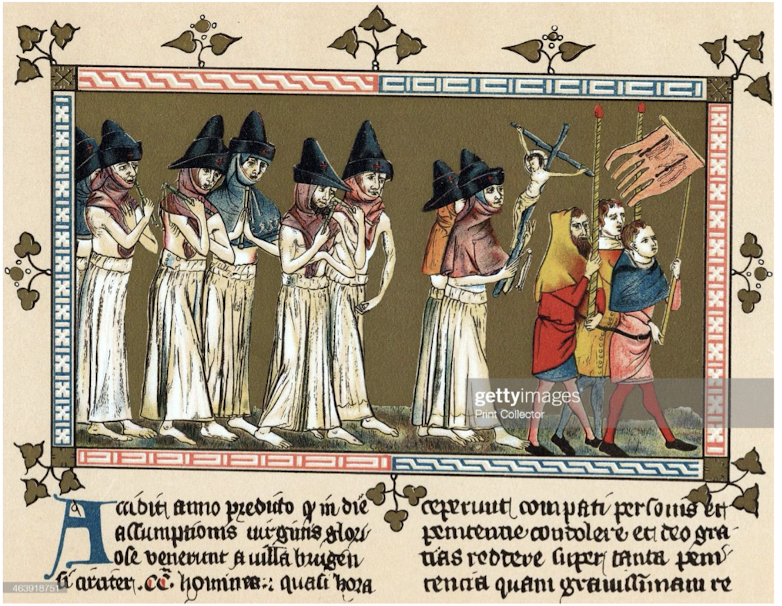 gettyimages
Print Collector
Accidit anno predicto q in die
assumptionis uirginis glori
ose venerunt a uilla brugen
si circiter .CC. homines: quasi hora
ceperunt compati personis et
penitentie condolere et deo gra
tias reddere super tanta peni
tencia quam grauissimam re
463918751